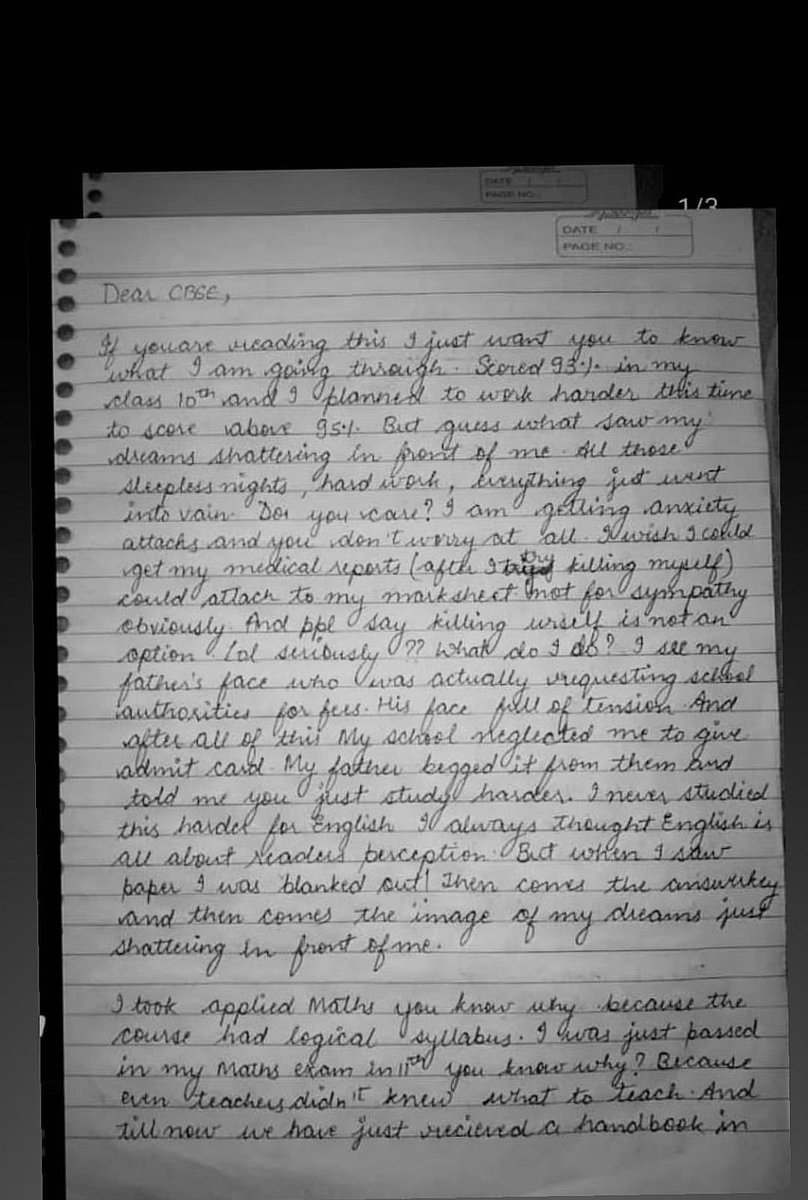 DATE / /
PAGE NO.:
1/3
DATE / /
PAGE NO.:
Dear CBSE,
If you are reading this I just want you to know
what I am going through. Scored 93% in my
class 10th and I planned to work harder this time
to score above 95%. But guess what saw my
dreams shattering in front of me. All those
sleepless nights, hard work, everything just went
into vain. Do you care? I am getting anxiety
attacks and you don't worry at all. I wish I could
get my medical reports (after I try killing myself)
could attach to my marksheet not for sympathy
obviously. And ppl say killing urself is not an
option. Lol seriously ?? What do I do? I see my
father's face who was actually requesting school
authorities for fees. His face full of tension. And
after all of this My school neglected me to give
admit card. My father begged it from them and
told me you just study harder. I never studied
this harder for English I always thought English is
all about readers perception. But when I saw
paper I was blanked out! Then comes the answerkey
and then comes the image of my dreams just
shattering in front of me.
I took applied Maths you know why because the
course had logical syllabus. I was just passed
in my Maths exam in 11th you know why? Because
even teachers didn't knew what to teach. And
till now we have just recieved a handbook in